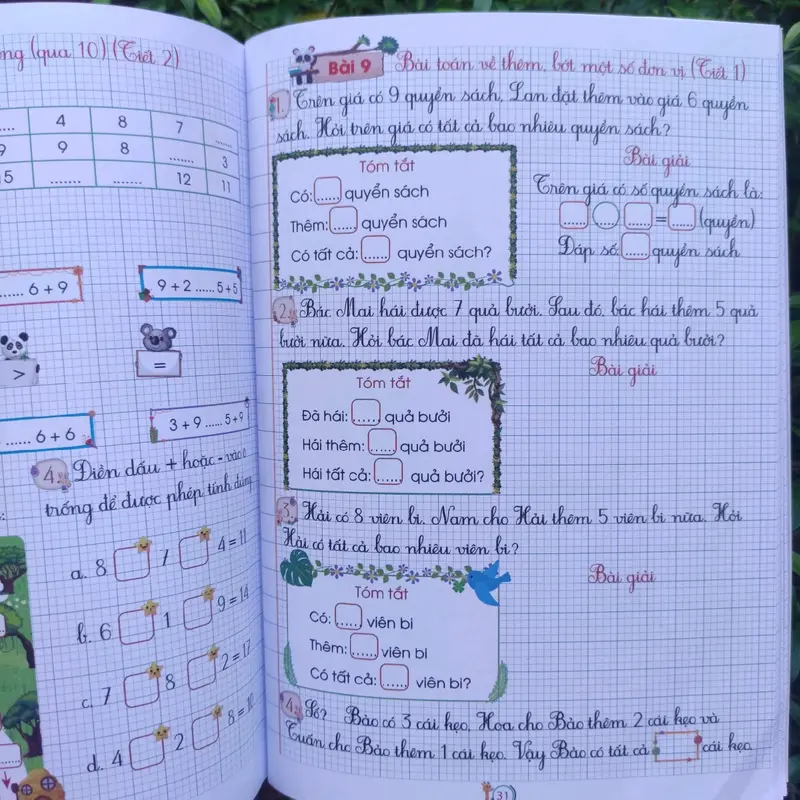 ng (qua 10) (Tiết 2)
..... 4 8 7 ......
9 9 8 ....... 3
15 ....... ....... 12 11
...... 6 + 9
9 + 2 ...... 5 + 5
>
=
...... 6 + 6
3 + 9 ...... 5 + 9
4. Điền dấu + hoặc - vào ô
trống để được phép tính đúng
a. 8 1 4 = 11
b. 6 1 9 = 14
c. 7 8 2 = 17
d. 4 2 8 = 10
Bài 9 Bài toán về thêm, bớt một số đơn vị (Tiết 1)
1. Trên giá có 9 quyển sách, Lan đặt thêm vào giá 6 quyển
sách. Hỏi trên giá có tất cả bao nhiêu quyển sách?
Tóm tắt
Có: ...... quyển sách
Thêm: ...... quyển sách
Có tất cả: ...... quyển sách?
Bài giải
Trên giá có số quyển sách là:
...... ...... ...... = ...... (quyển)
Đáp số: ...... quyển sách
2. Bác Mai hái được 7 quả bưởi. Sau đó, bác hái thêm 5 quả
bưởi nữa. Hỏi bác Mai đã hái tất cả bao nhiêu quả bưởi?
Tóm tắt
Đã hái: ...... quả bưởi
Hái thêm: ...... quả bưởi
Hái tất cả: ...... quả bưởi?
Bài giải
3. Hải có 8 viên bi. Nam cho Hải thêm 5 viên bi nữa. Hỏi
Hải có tất cả bao nhiêu viên bi?
Tóm tắt
Có: ...... viên bi
Thêm: ...... viên bi
Có tất cả: ...... viên bi?
Bài giải
4. Số? Bảo có 3 cái kẹo, Hoa cho Bảo thêm 2 cái kẹo và
Tuấn cho Bảo thêm 1 cái kẹo. Vậy Bảo có tất cả cái kẹo.
31